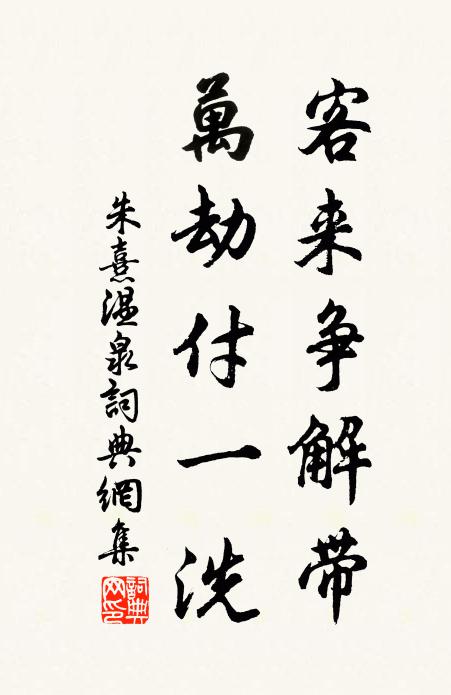 客来争解带
萬劫付一洗
朱熹温泉詞典網集
詞典网印